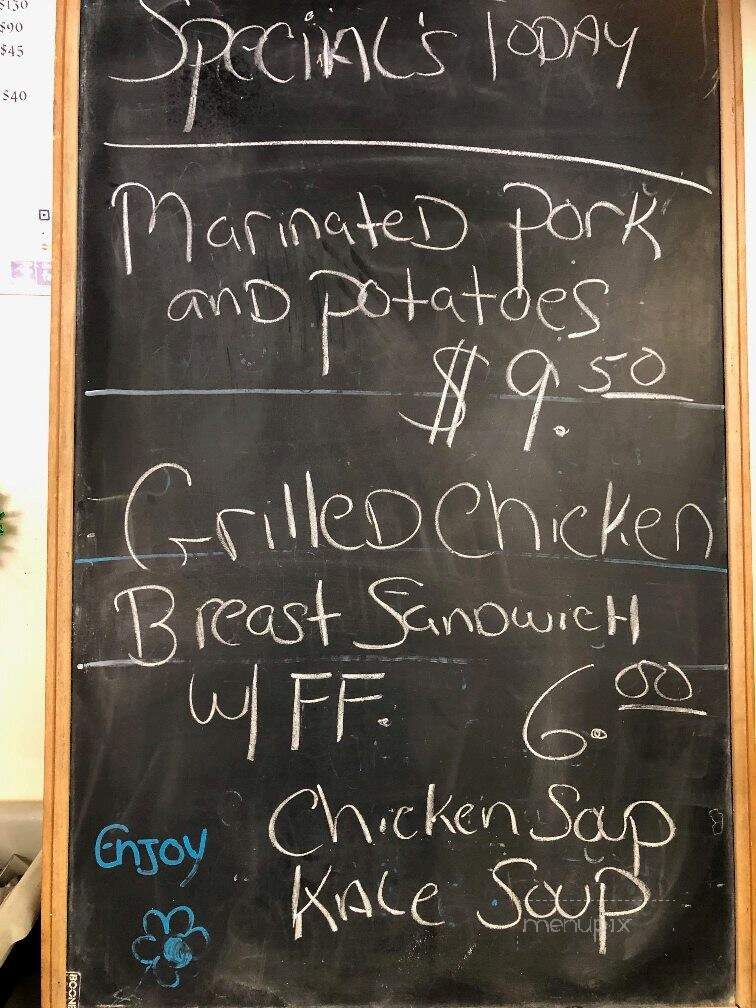 $130
$90
$45
$40
Special's Today
MarinateD pork
anD potatoes
$9.50
GrilleD Chicken
Breast SanDwicH
W/ FF. 6.00
Chicken Soup
Kale Soup
Enjoy
menupix
BOONE